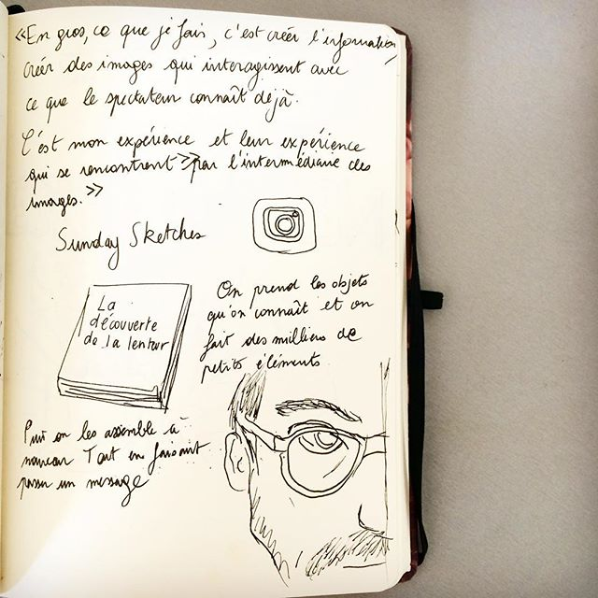 «En gros, ce que je fais, c'est créer l'information,
créer des images qui interagissent avec
ce que le spectateur connaît déjà.
C'est mon expérience et leur expérience
qui se rencontrent » par l'intermédiaire des
images. »
Sunday Sketches
La
découverte
de la lenteur
On prend les objets
qu'on connaît et on
fait des milliers de
petits éléments.
Puis on les assemble à
nouveau Tout en faisant
passer un message